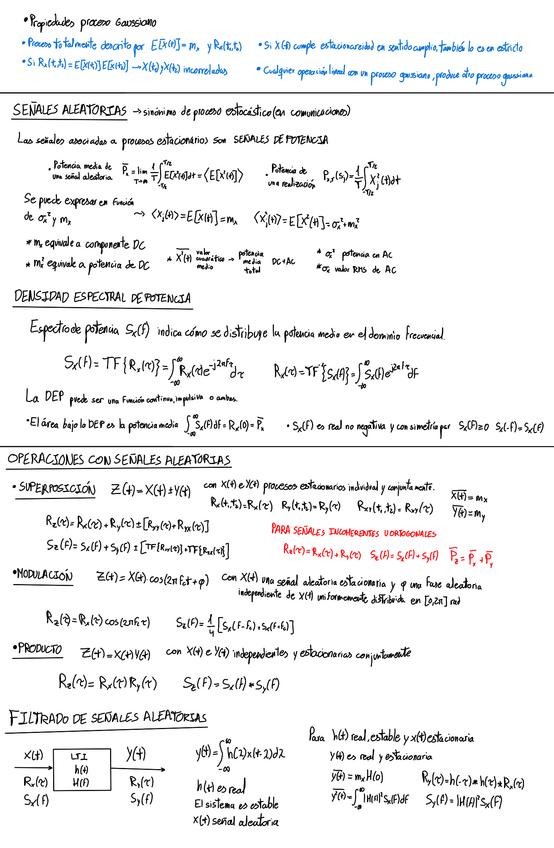 • Propiedades proceso Gaussiano
• Proceso totalmente descrito por E[X(t)] = mₓ y Rₓ(t₁,t₂)
• Si X(t) cumple estacionareidad en sentido amplio, también lo es en estricto
• Si Rₓ(t₁,t₂) = E[X(t₁)]E[X(t₂)] → X(t₁) y X(t₂) incorreladas
• Cualquier operación lineal con un proceso gaussiano, produce otro proceso gaussiano
SEÑALES ALEATORIAS → sinónimo de proceso estocástico (en comunicaciones)
Las señales asociadas a procesos estacionarios son SEÑALES DE POTENCIA
• Potencia media de una señal aleatoria P̅ₓ = lim T→∞ 1/T ∫_{-T/2}^{T/2} E[X²(t)]dt = ⟨E[X²(t)]⟩
• Potencia de una realización
Se puede expresar en función
de σₓ² y mₓ → ⟨Xⱼ(t)⟩ = E[X(t)] = mₓ ⟨Xⱼ²(t)⟩ = E[X²(t)] = σₓ² + mₓ²
* mₓ equivale a componente DC
* mₓ² equivale a potencia de DC
* X²(t) valor cuadrático medio → potencia media total DC+AC
* σₓ² potencia en AC
* σₓ valor RMS de AC
DENSIDAD ESPECTRAL DE POTENCIA
Espectro de potencia Sₓ(f) indica cómo se distribuye la potencia media en el dominio frecuencial.
Sₓ(f) = TF{Rₓ(τ)} = ∫_{-∞}^{∞} Rₓ(τ)e^{-j2πfτ}dτ Rₓ(τ) = TF⁻¹{Sₓ(f)} = ∫_{-∞}^{∞} Sₓ(f)e^{j2πfτ}df
La DEP puede ser una función continua, impulsiva o ambas.
• El área bajo la DEP es la potencia media ∫_{-∞}^{∞} Sₓ(f)df = Rₓ(0) = P̅ₓ
• Sₓ(f) es real no negativa y con simetría par Sₓ(f) ≥ 0 Sₓ(-f) = Sₓ(f)
OPERACIONES CON SEÑALES ALEATORIAS
• SUPERPOSICIÓN Z(t) = X(t) ± Y(t) con X(t) e Y(t) procesos estacionarios individual y conjuntamente.
Rₓ(t₁,t₂) = Rₓ(τ) R_y(t₁,t₂) = R_y(τ) R_xy(t₁,t₂) = R_xy(τ)
X̅(t) = mₓ
Y̅(t) = m_y
R_z(τ) = Rₓ(τ) + R_y(τ) ± [R_xy(τ) + R_yx(τ)]
S_z(f) = Sₓ(f) + S_y(f) ± [TF{R_xy(τ)} + TF{R_yx(τ)}]
PARA SEÑALES INCOHERENTES U ORTOGONALES
R_z(τ) = Rₓ(τ) + R_y(τ) S_z(f) = Sₓ(f) + S_y(f) P̅_z = P̅ₓ + P̅_y
• MODULACIÓN Z(t) = X(t) cos(2πf₀t + φ) con X(t) una señal aleatoria estacionaria y φ una fase aleatoria
independiente de X(t) uniformemente distribuida en [0,2π] rad
• PRODUCTO Z(t) = X(t)Y(t) con X(t) e Y(t) independientes y estacionarias conjuntamente
R_z(τ) = Rₓ(τ) R_y(τ) S_z(f) = Sₓ(f) * S_y(f)
FILTRADO DE SEÑALES ALEATORIAS
X(t)
Rₓ(τ)
Sₓ(f)
LTI
h(t)
H(f)
Y(t)
R_y(τ)
S_y(f)
h(t) es real
El sistema es estable
X(t) señal aleatoria
Para h(t) real, estable y x(t) estacionaria
Y(t) es real y estacionaria
Y̅(t) = mₓ H(0)
R_y(τ) = h(-τ) * h(τ) * Rₓ(τ)
S_y(f) = |H(f)|² Sₓ(f)